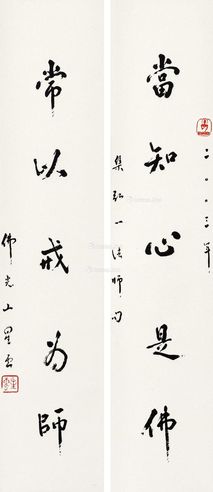 當知心是佛
二〇〇三年
集弘一法師句
常以戒為師
佛光山星雲